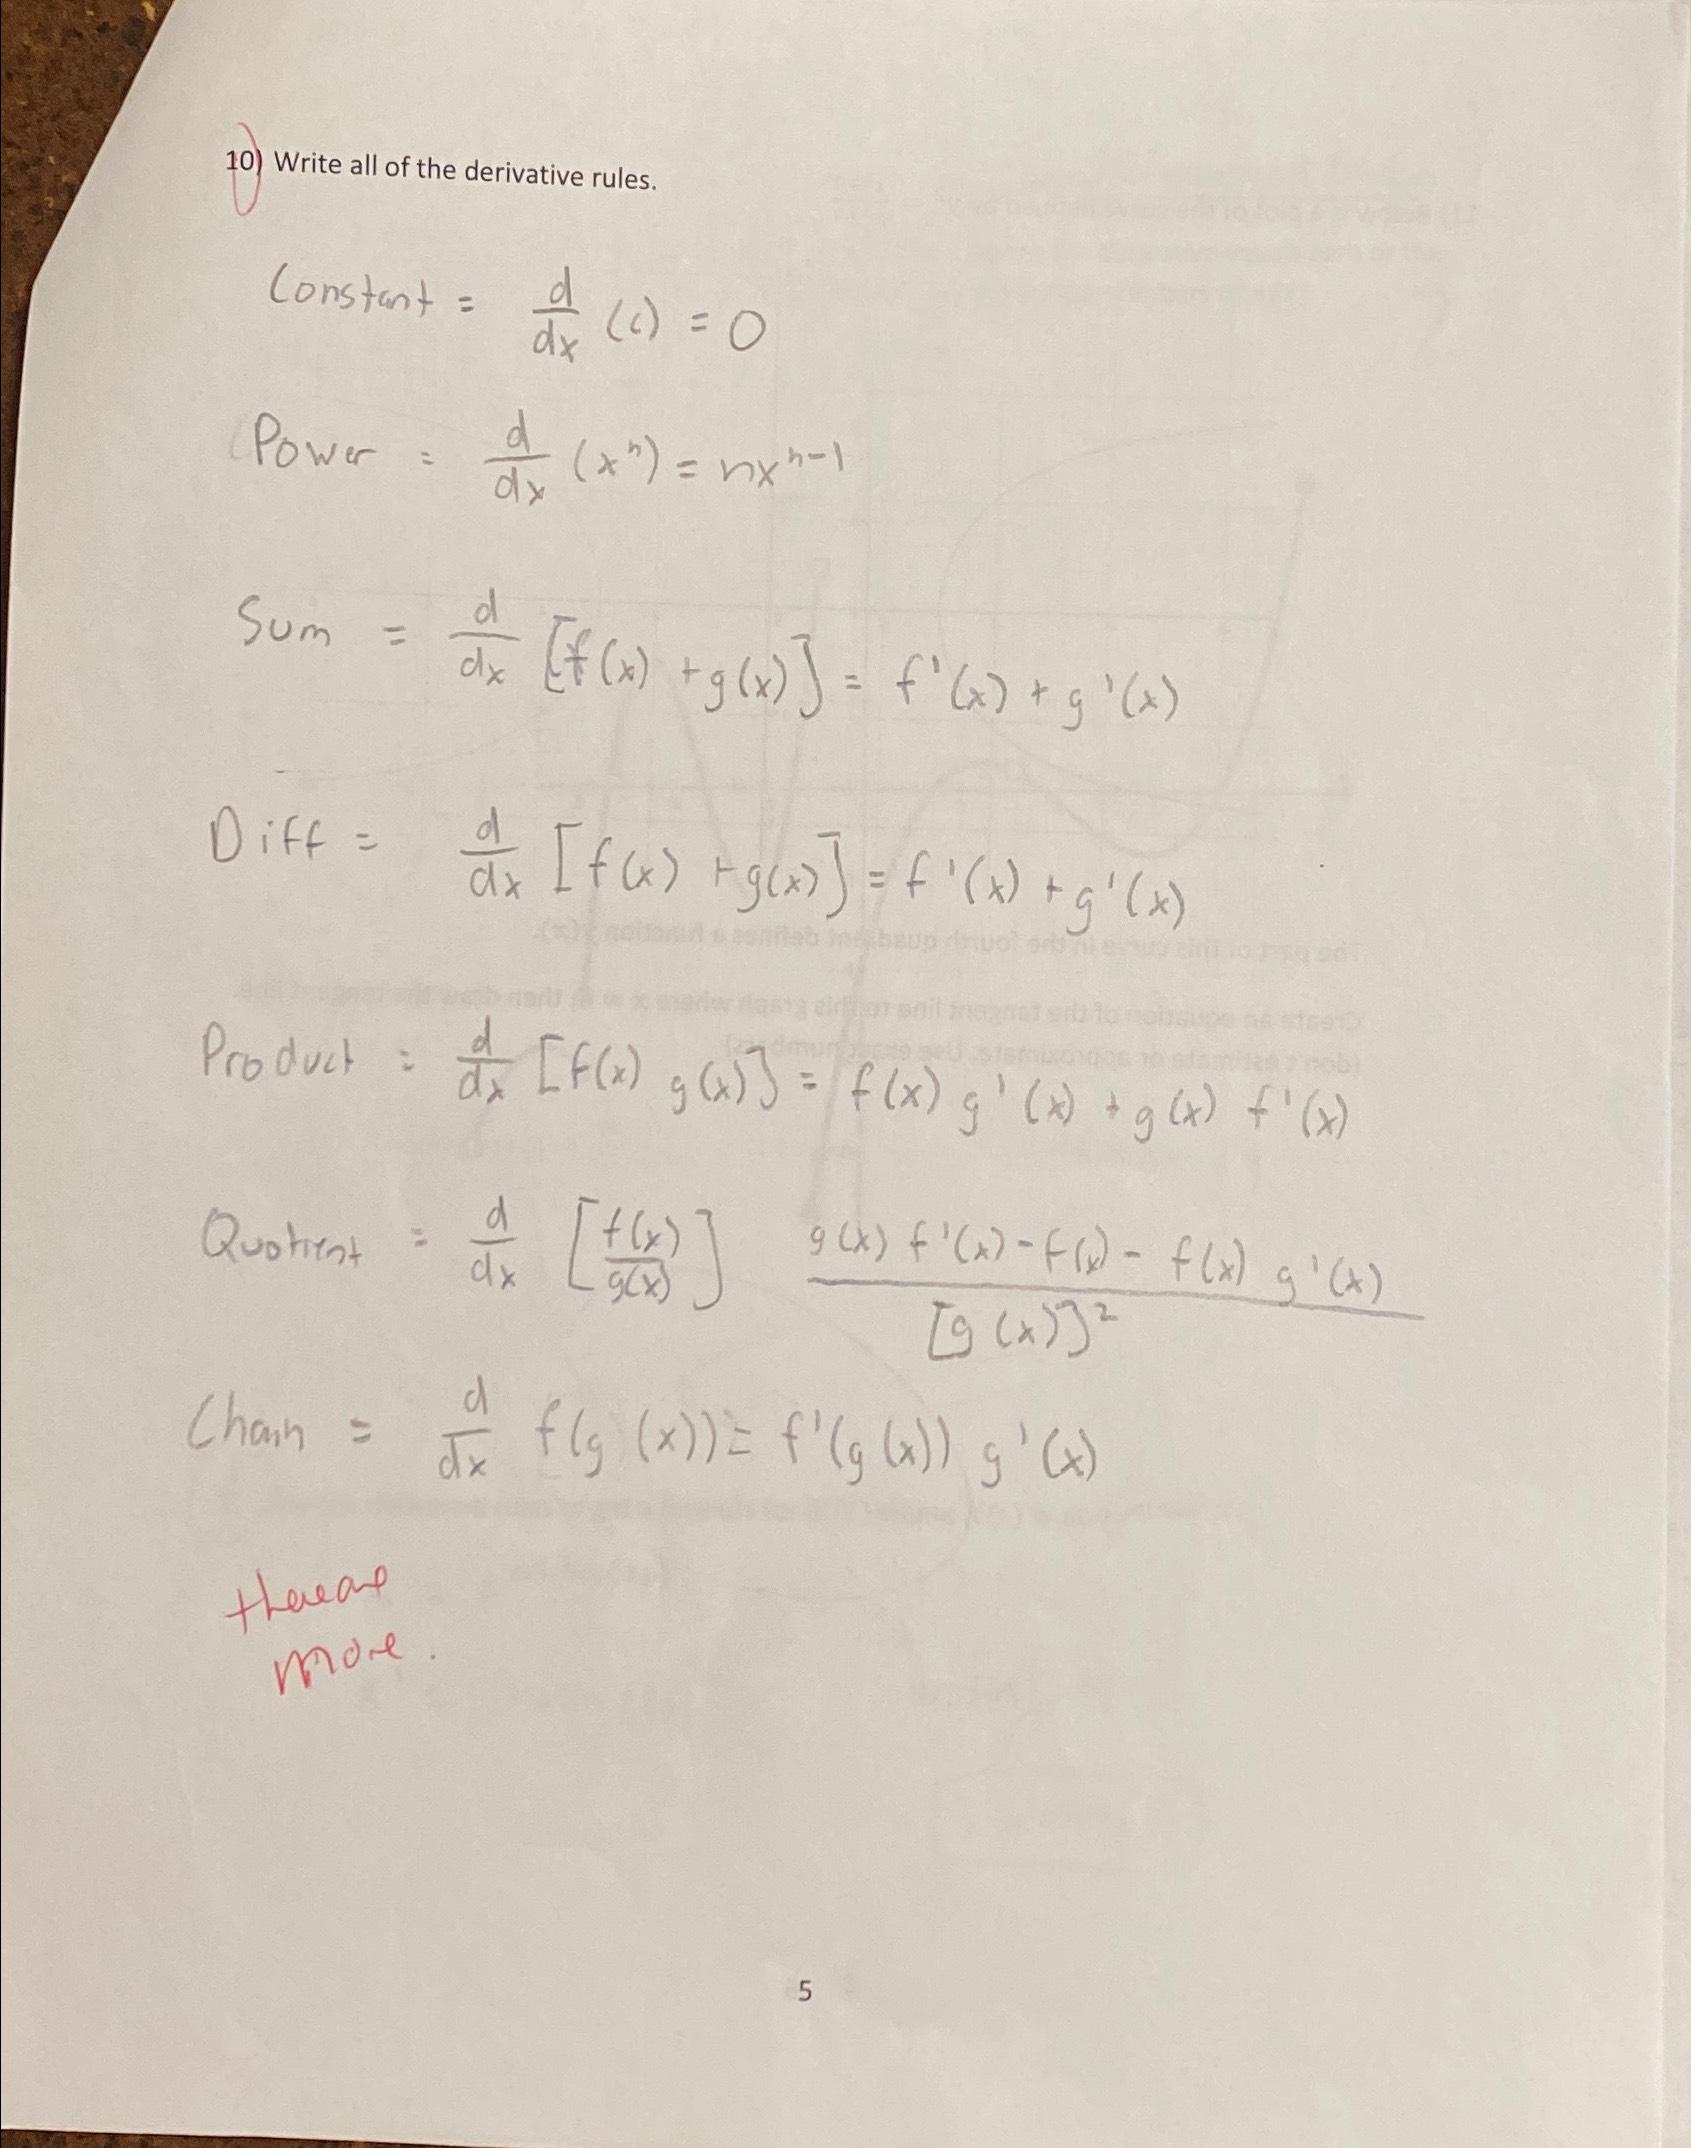 10) Write all of the derivative rules.
Constant = d/dx (c) = 0
Power = d/dx (x^n) = nx^n-1
Sum = d/dx [f(x) + g(x)] = f'(x) + g'(x)
Diff = d/dx [f(x) + g(x)] = f'(x) + g'(x)
Product = d/dx [f(x) g(x)] = f(x) g'(x) + g(x) f'(x)
Quotient = d/dx [f(x)/g(x)] g(x) f'(x) - f(x) - f(x) g'(x) / [g(x)]^2
Chain = d/dx f(g(x)) = f'(g(x)) g'(x)
there are
more.
5